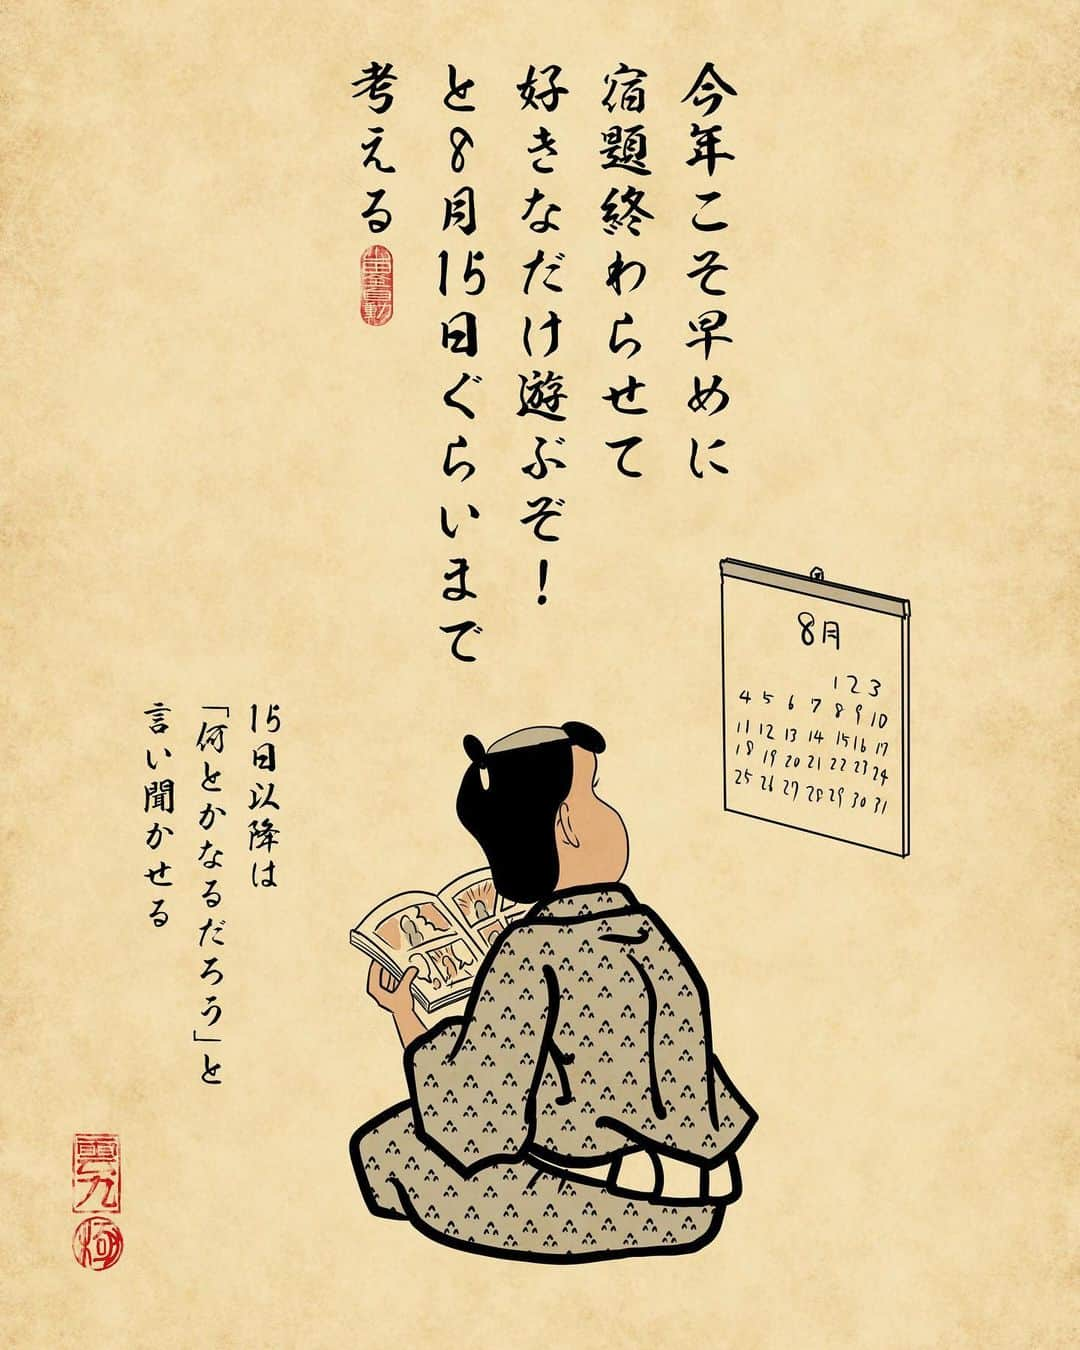 今年こそ早めに
宿題終わらせて
好きなだけ遊ぶぞ！
と8月15日ぐらいまで
考える
8月
1 2 3
4 5 6 7 8 9 10
11 12 13 14 15 16 17
18 19 20 21 22 23 24
25 26 27 28 29 30 31
15日以降は
「何とかなるだろう」と
言い聞かせる